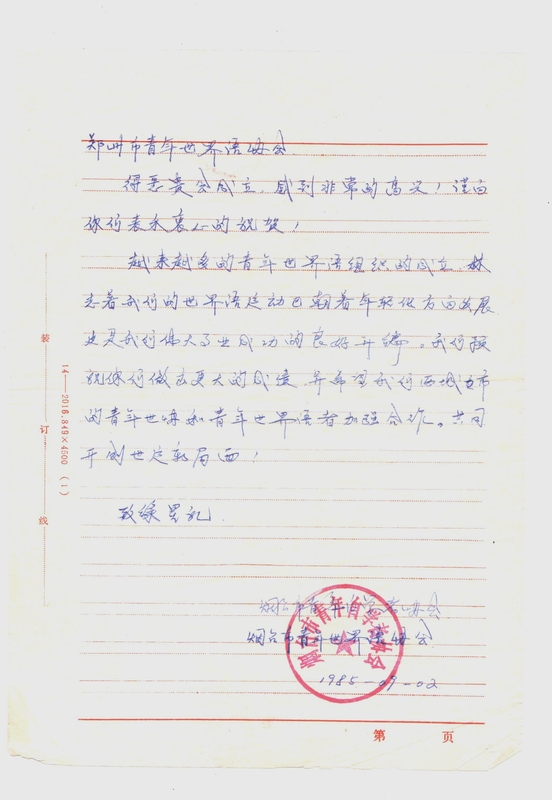 郑州市青年世界语协会
得悉贵会成立，感到非常的高兴！谨向
你们表示衷心的祝贺！
越来越多的青年世界语组织的成立，标
志着我们的世界语运动已朝着年轻化方向发展
这是我们伟大事业成功的良好开端。我们预
祝你们做出更大的成绩，并希望我们两城市
的青年世协和青年世界语者加强合作。共同
开创世运新局面！
致绿星礼
烟台市青年自学者协会
烟台市青年世界语协会
烟台市青年自学者协会
1985-09-02
第 页
装
订
线
14——2016.849×4500 (1)